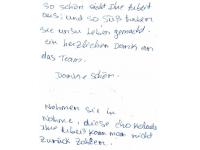 So schön sieht Ihre Arbeit
aus! und so süß haben
Sie unser Leben gemacht.
ein herzlichen Dank an
das Team.
Danke schön.
Nehmen Sie in
Nohme, diese Schokolade
Ihre Arbeit kann man nicht
zurück zahlen.